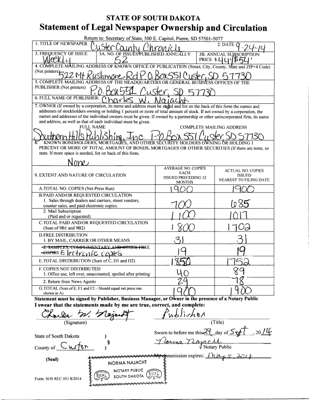 STATE OF SOUTH DAKOTA
Statement of Legal Newspaper Ownership and Circulation
Return to: Secretary of State, 500 E. Capitol, Pierre, SD 57501-5077
1. TITLE OF NEWSPAPER Custer County Chronicle 2. DATE 9-24-14
3. FREQUENCY OF ISSUE Weekly 3A. NO. OF ISSUES PUBLISHED ANNUALLY 52 3B. ANNUAL SUBSCRIPTION PRICE
4. COMPLETE MAILING ADDRESS OF KNOWN OFFICE OF PUBLICATION (Street, City, County, State and ZIP+4 Code)
(Not printers) 522 Mt Rushmore Rd P.O. Box 551 Custer, SD 57730
5. COMPLETE MAILING ADDRESS OF THE HEADQUARTERS OR GENERAL BUSINESS OFFICES OF THE
PUBLISHER (Not printers) P.O. Box 551 Custer, SD 57730
6. FULL NAME OF PUBLISHER: Charles W. Najacht
7. OWNER (If owned by a corporation, its name and address must be stated and also the names and
addresses of stockholders owning or holding 1 percent or more of total amount of stock. If not owned by a corporation, the
names and addresses of the individual owners must be given. If owned by a partnership or other unincorporated firm, its name
and address, as well as that of each individual must be given.
FULL NAME COMPLETE MAILING ADDRESS
Southern Hills Publishing, Inc P.O. Box 551 Custer SD 57730
8. KNOWN BONDHOLDERS, MORTGAGEES, AND OTHER SECURITY HOLDERS OWNING OR HOLDING 1
PERCENT OR MORE OF TOTAL AMOUNT OF BONDS, MORTGAGES OR OTHER SECURITIES (If there are none, so
state. If more space is needed, list on back of this form.
None
9. EXTENT AND NATURE OF CIRCULATION
AVERAGE NO. COPIES EACH ISSUED PRECEDING 12 MONTHS
ACTUAL NO. COPIES ISSUED NEAREST TO FILING DATE
A. TOTAL NO. COPIES (Net Press Run) 1900 1900
B. PAID AND/OR REQUESTED CIRCULATION
1. Sales through dealers and carriers, street vendors, counter sales, and paid electronic copies. 700 685
2. Mail Subscription (Paid and or requested) 1100 1017
C. TOTAL PAID AND/OR REQUESTED CIRCULATION (Sum of 9B1 and 9B2) 1800 1702
D. FREE DISTRIBUTION
1. BY MAIL, CARRIER OR OTHER MEANS 31 31
Electronic copies 19 19
E. TOTAL DISTRIBUTION (Sum of C, D1 and D2) 1850 1752
F. COPIES NOT DISTRIBUTED
1. Office use, left over, unaccounted, spoiled after printing 40 89
2. Return from News Agents 29 78
G. TOTAL (Sum of E, F1 and F2 - Should equal net press run shown in A) 1900
Statement must be signed by Publisher, Business Manager, or Owner in the presence of a Notary Public
I swear that the statements made by me are true, correct, and complete:
Charles W. Najacht Publisher
(Signature) (Title)
State of South Dakota )
§
County of Custer )
Sworn to before me this 29 day of Sept , 2014
Norma Najacht
Notary Public
(Seal)
NORMA NAJACHT
NOTARY PUBLIC
SOUTH DAKOTA
SEAL
SEAL
Form: SOS REC 051 8/2014